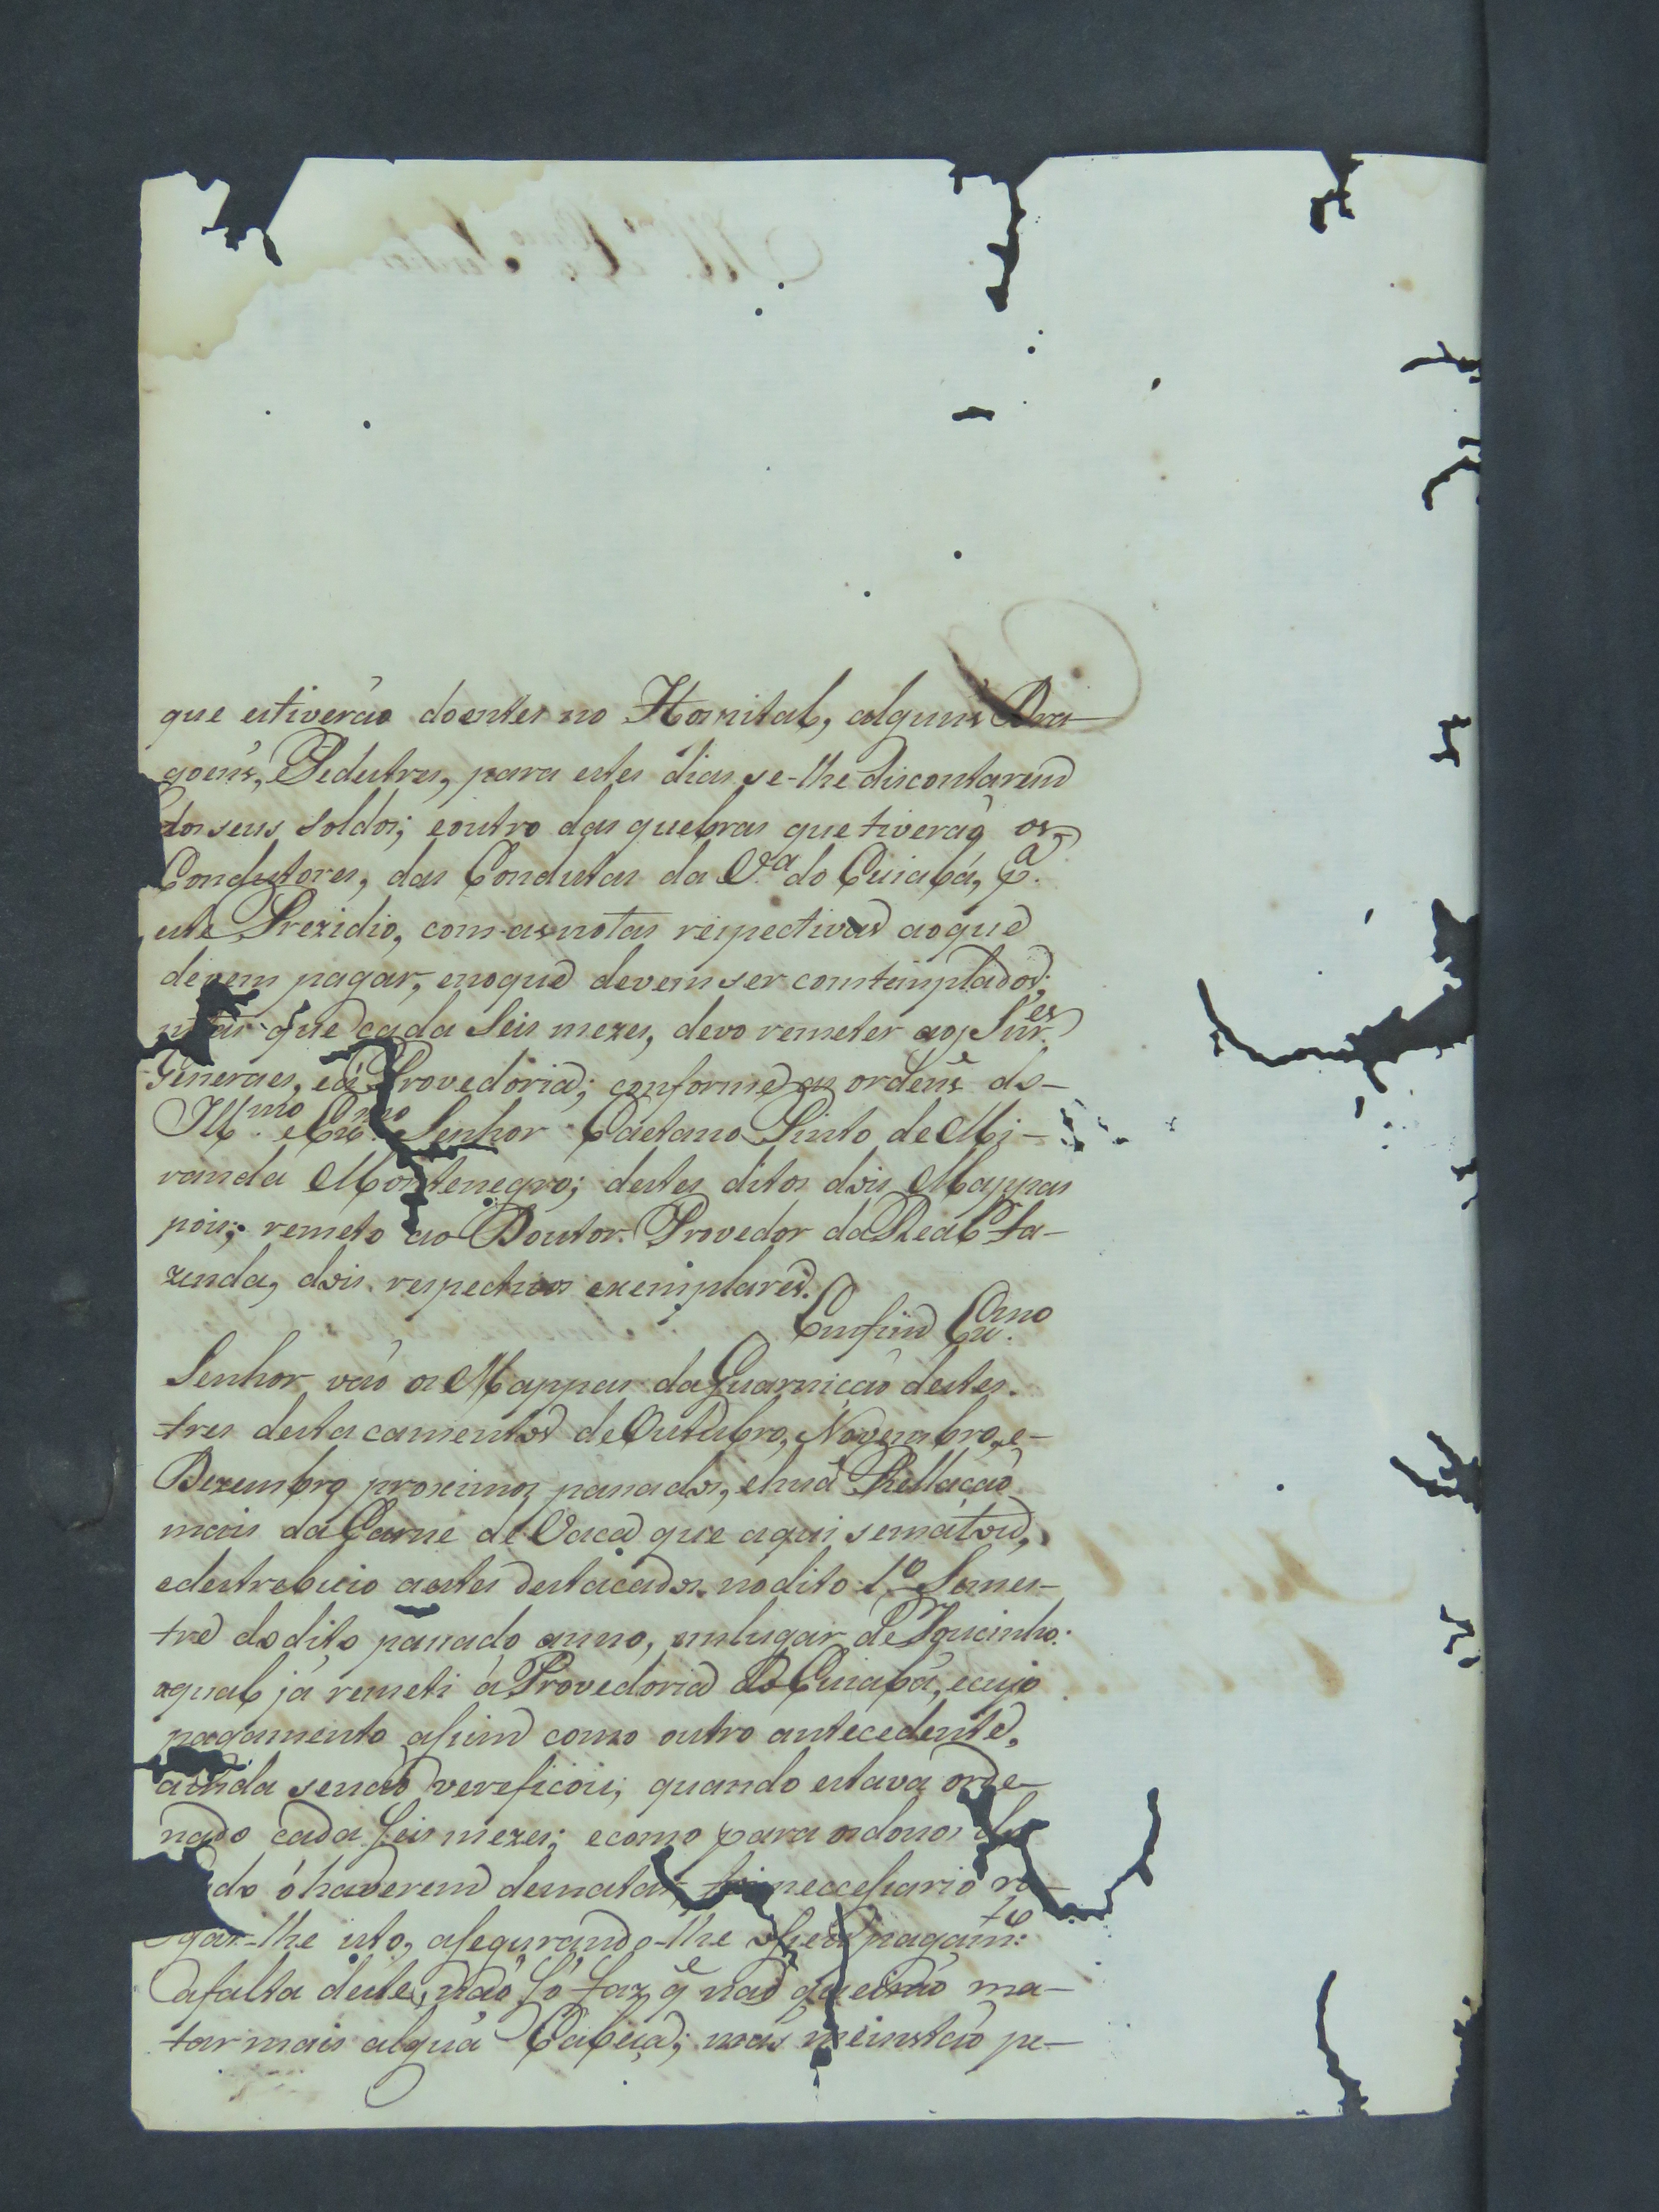 que estiverão doentes no Hospital, alguns Dra-
goens, Pedestres, para estes dias se-lhe discontarem
dos seus soldos; eoutro das quebras que tiverão os
Condutores, das Condutas da V.ª do Cuiabá, p.ª
este Prezidio, com as notas respectivas aoque
devem pagar, enoque devem ser comtemplados;
que cada Seis mezes, devo remeter aos Snr.es
Generaes, eá Provedoria; conforme as ordens do-
Ill.mo e Ex.mo Senhor Caetano Pinto de Mi-
randa Montenegro; destes ditos dois Mappas
pois; remeto ao Doutor Provedor da Real Fa-
zenda, dois respectivos exemplares.
Emfim Ex.mo
Senhor vão os Mappas da Guarnição destes
tres destacamentos de Outubro, Novembro, e-
Dezembro proximos passados, ehuã Rellação
mais da Carne de Vaca que aqui sematou,
edestrebuio aestes destacados nodito 1.º Semes-
tre dodito passado anno, emlugar de Toucinho:
aqual já remeti á Provedoria do Cuiabá, ecujo
pagamento assim como outro antecedente,
ainda senão vereficou; quando estava orde-
nado cada Seis mezes; ecomo para osdonos do
do óhaverem dematar, foi neccessario ro-
gar-lhe isto, assegurando-lhe oseu pagam.to
afalta deste, não só faz q̃ não queirão ma-
tar mais alguã Cabeça; mas meinstão pe-